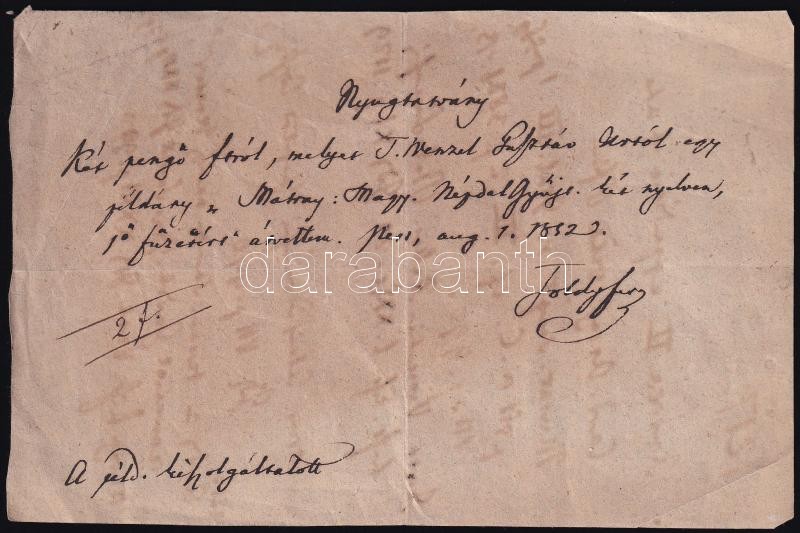 Nyugtatvány
Két pengő ftról, melyet T. Wenzel Gusztáv Urtól egy
példány „ Mátray: Magy. Népdal Gyűjt. két nyelven,
1ő füzetért átvettem. Pest, aug. 1. 1852.
Toldy Fer
2 f.
A péld. kiszolgáltatott
darabanth